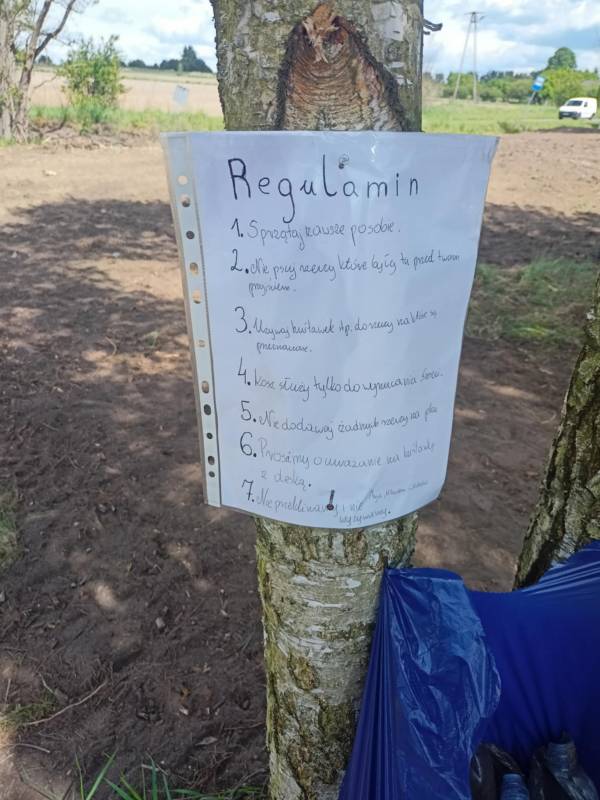 Regulamin
1. Sprzątaj zawsze po sobie.
2. Nie psuj rzeczy które były tu przed twoim
przyjściem.
3. Używaj huśtawek itp. do rzeczy na które są
przeznaczone.
4. Kosz służy tylko do wyrzucania śmieci.
5. Nie dodawaj żadnych rzeczy na plac
6. Prosimy o uważanie na huśtawkę
z deską.
7. Nie przeklinamy i nie
wyzywamy.